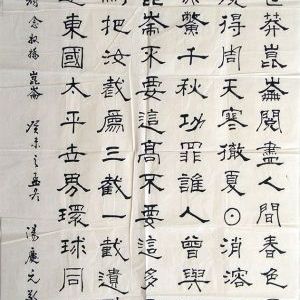 莽崑崙閱盡人間春色
得周天寒徹夏日消溶
千秋功罪誰人曾與
崙不要這高不要這多
把汝裁爲三截一截遺
東國太平世界環球同
念奴嬌 崑崙 癸未之孟冬 湯